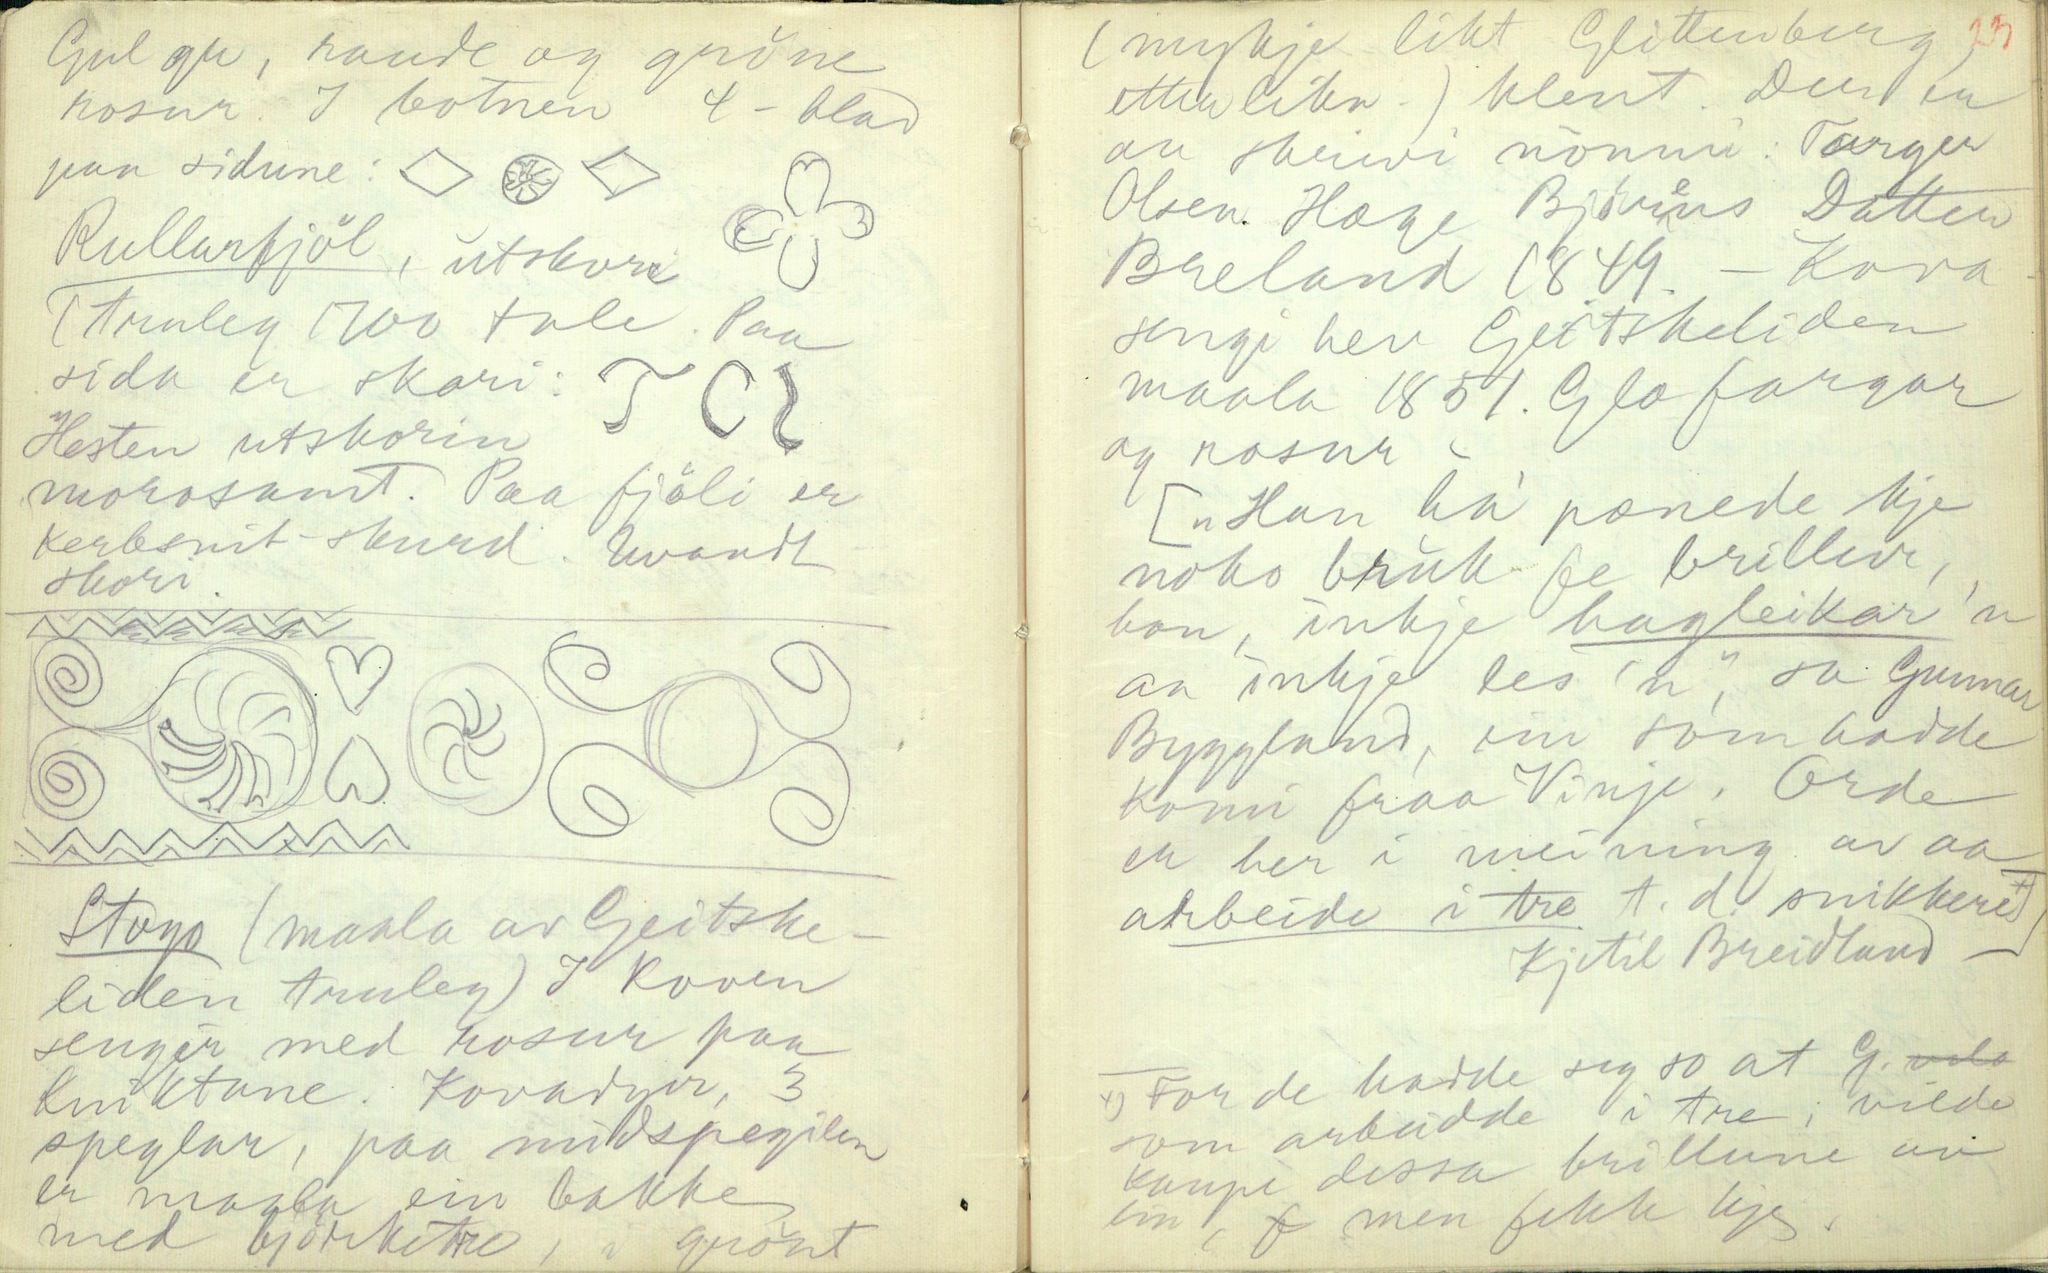 Gul gr, raude og gröne
rosur. I botnen 4-blad
paa sidune:
Rullarfjöl, utskori
(truleg 1700 tale. Paa
sida er skori: T C I
Hesten utskorin
morosamt. Paa fjöli er
kerbsnit-skurd. Uvandt
skori.
Stogo (maala av Geitske-
liden truleg) I Koven
sengir med rosur paa
kniktane. Kovadyr, 3
speglar, paa midspegilen
er maala ein bakke
med björketre, i grönt
23
(mykje likt Glittenberg
etter likn.) klent. Der er
aa skrivi nönni: Targer
Olsen. Hæge Björens Datter
Breland 1849. – Kova-
sengi hev Geitskeliden
maala 1851. Glæ fargar
og rosur.
["Han ha' pænede kje
noko bruk fe brillur,
han, inkje hagleikar 'n
aa inkje les 'n", sa Gunnar
Byggland, ein som hadde
komi fraa Vinje. Orde
er her i meining av aa
arbeide i tre t. d. snikkere+)]
Kjetil Breidland –
+) For de hadde seg so at G.
som arbeidde i tre, vilde
kaupe dessa brillune av
ein, men fekk kje.